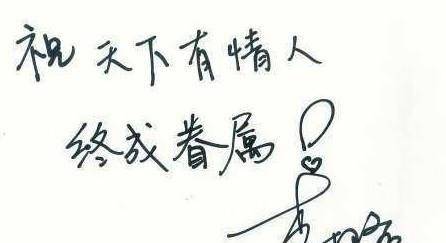 祝天下有情人
终成眷属!